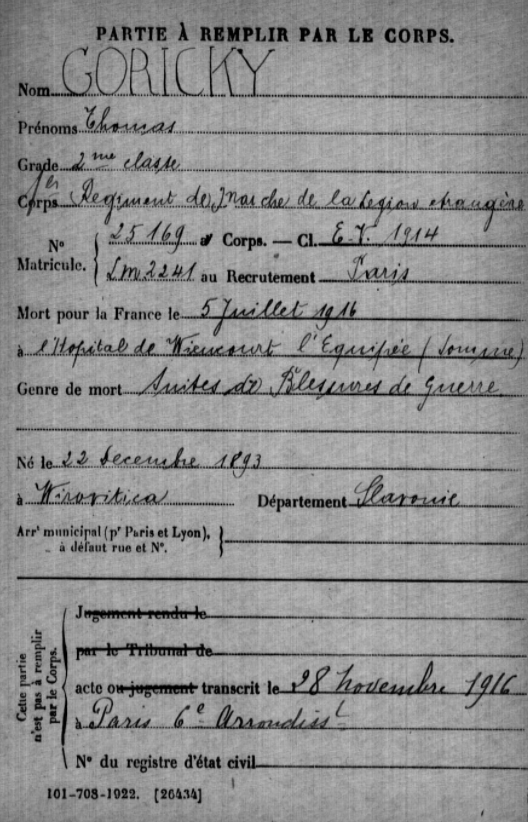 PARTIE À REMPLIR PAR LE CORPS.
Nom GORICKY
Prénoms Thomas
Grade 2me classe
Corps 1er Régiment de Marche de la Legion etrangère
N° Matricule. { 25169 au Corps. — Cl. E.V. 1914
Lm2241 au Recrutement Paris
Mort pour la France le 5 Juillet 1916
à l'Hopital de Wiencourt l'Equipée (Somme)
Genre de mort Suites de Blessures de Guerre
Né le 22 Decembre 1893
à Wirovitica Département Slavonie
Arrt municipal (pr Paris et Lyon),
à défaut rue et N°.
Cette partie n'est pas à remplir par le Corps.
Jugement rendu le
par le Tribunal de
acte ou jugement transcrit le 28 Novembre 1916
à Paris 6e Arrondisst
N° du registre d'état civil
101-708-1922. [26434]